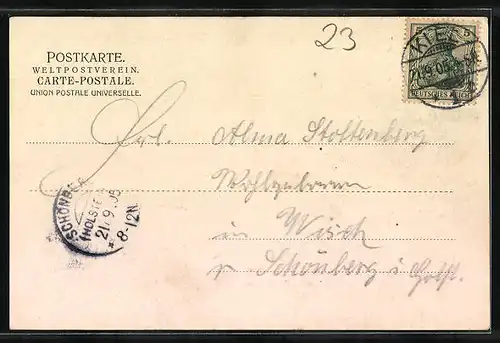 23
POSTKARTE.
WELTPOSTVEREIN.
CARTE-POSTALE.
UNION POSTALE UNIVERSELLE.
KIEL
5
21.9.05
DEUTSCHES REICH
Frl. Alma Stoltenberg
Wohlgeboren
in Wisch
p Schönberg i Holst.
SCHÖNBERG
(HOLSTEIN)
21/9.05
* 8-12N